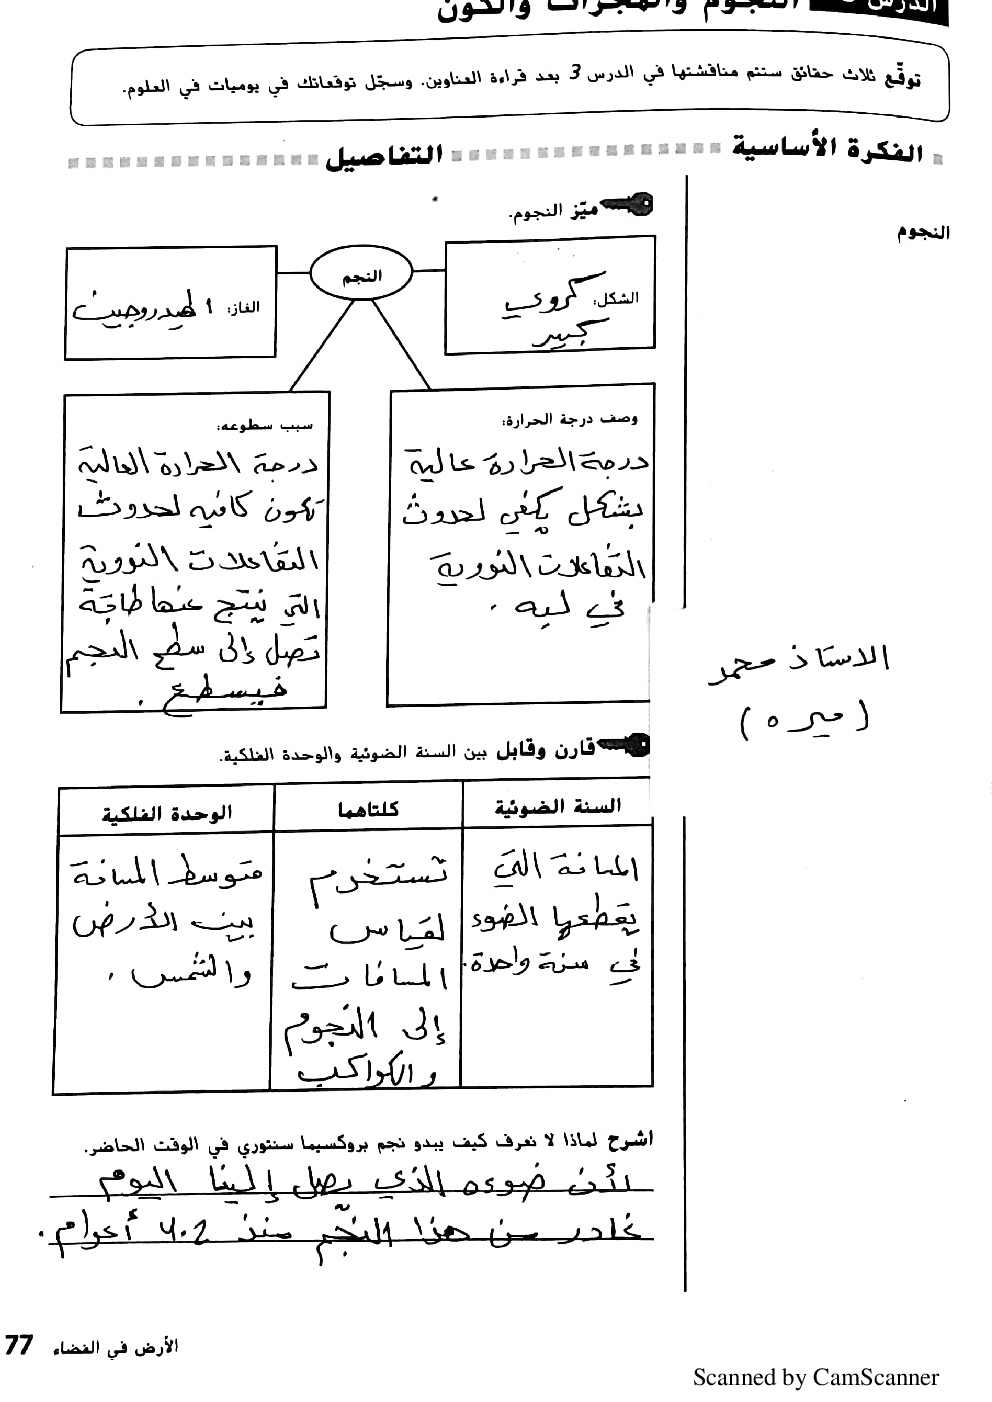 الدرس
النجوم والمجرات والكون
توقّع ثلاث حقائق ستتم مناقشتها في الدرس 3 بعد قراءة العناوين. وسجّل توقعاتك في يوميات في العلوم.
الفكرة الأساسية
التفاصيل
النجوم
ميّز النجوم.
النجم
الشكل: كروي
كبير
الغاز: الهيدروجين
وصف درجة الحرارة:
درجة الحرارة عالية
بشكل يكفي لحدوث
التفاعلات النووية
في لبه .
سبب سطوعه:
درجة الحرارة العالية
تكون كافيه لحدوث
التفاعلات النووية
التي ينتج عنها طاقة
تصل إلى سطح النجم
فيسطع .
الاستاذ محمد
(ميره)
قارن وقابل بين السنة الضوئية والوحدة الفلكية.
السنة الضوئية
كلتاهما
الوحدة الفلكية
المسافة التي
يقطعها الضوء
في سنة واحدة.
تستخدم
لقياس
المسافات
إلى النجوم
والكواكب
متوسط المسافة
بين الأرض
والشمس .
اشرح لماذا لا نعرف كيف يبدو نجم بروكسيما سنتوري في الوقت الحاضر.
لأن ضوءه الذي يصل إلينا اليوم
غادر من هذا النجم منذ 4.2 أعوام.
الأرض في الفضاء 77
Scanned by CamScanner